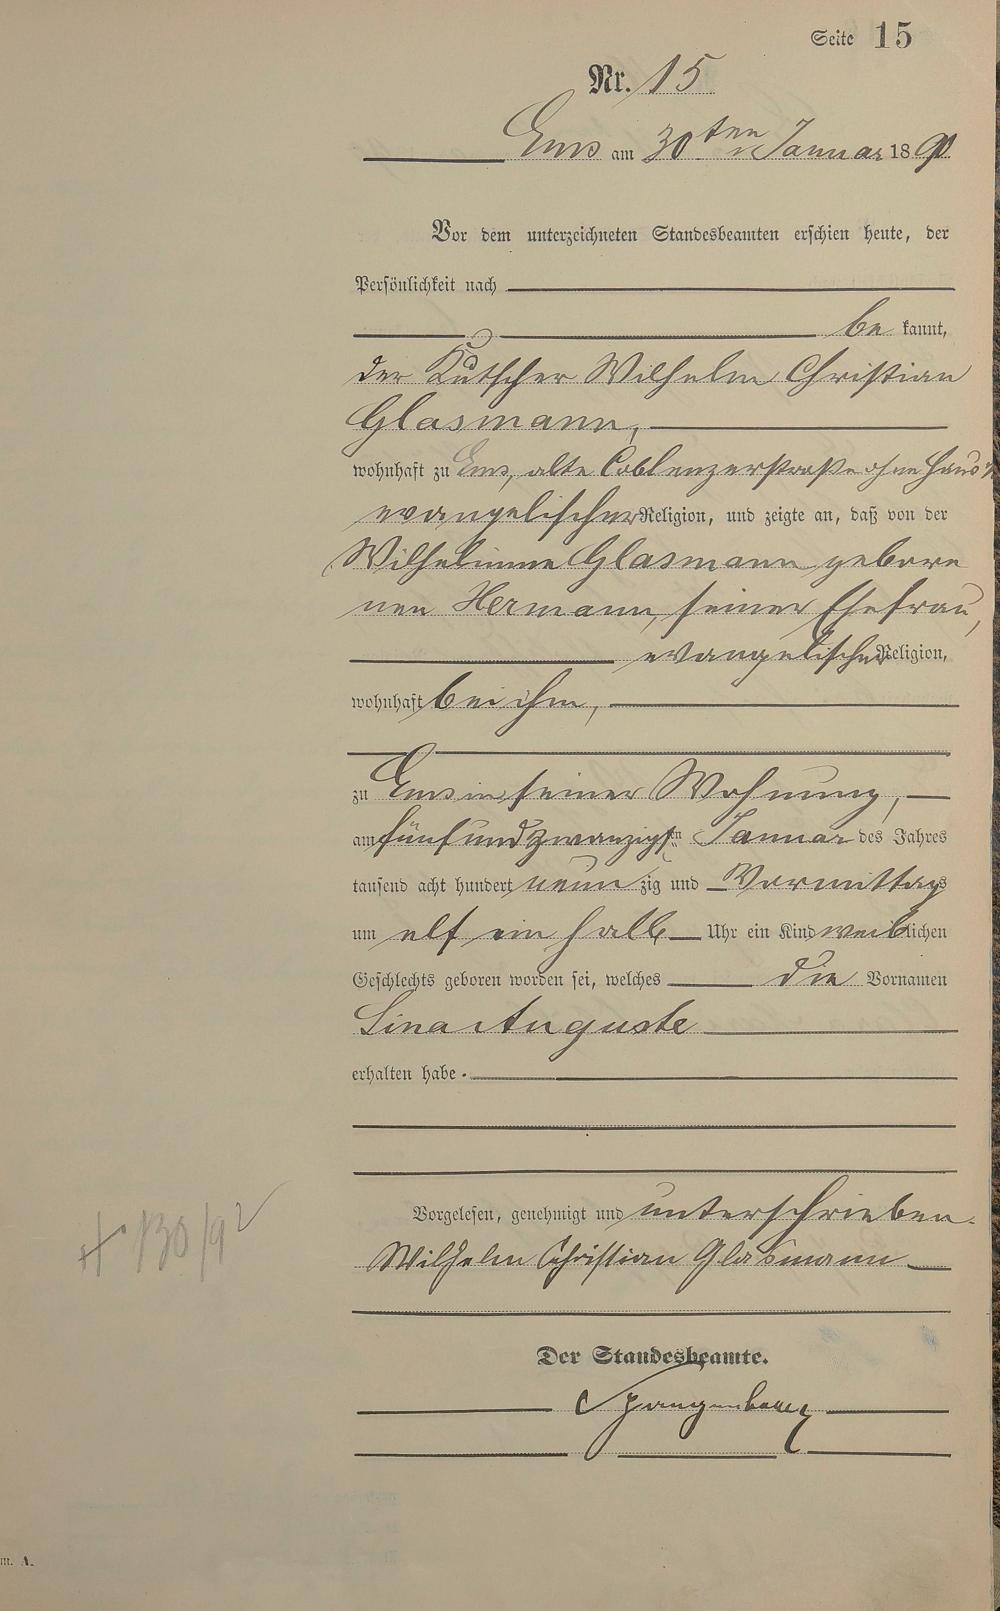 Seite 15
Nr. 15
Ems am 30ten Januar 1890
Vor dem unterzeichneten Standesbeamten erschien heute, der
Persönlichkeit nach
be kannt,
der Kutscher Wilhelm Christian
Glasmann,
wohnhaft zu Ems, alte Coblenzerstraße ohne Haus
evangelischer Religion, und zeigte an, daß von der
Wilhelmine Glasmann gebore
nen Hermann, seiner Ehefrau,
evangelischer Religion,
wohnhaft bei ihm,
zu Ems in seiner Wohnung,
am fünfundzwanzigsten Januar des Jahres
tausend acht hundert neunzig und Vormittags
um elf ein halb Uhr ein Kind weiblichen
Geschlechts geboren worden sei, welches die Vornamen
Lina Auguste
erhalten habe.
Vorgelesen, genehmigt und unterschrieben.
Wilhelm Christian Glasmann
Der Standesbeamte.
Spangenberg
130/92
m. A.